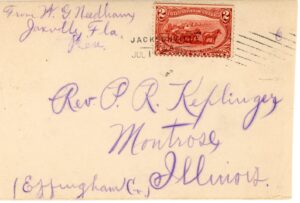 From W. G. Needham
Jaxville, Fla.
2
JACKSONVILLE
FLA.
JUL 1
Rev. P. R. Keplinger
Montrose
Illinois.
(Effingham Co.)